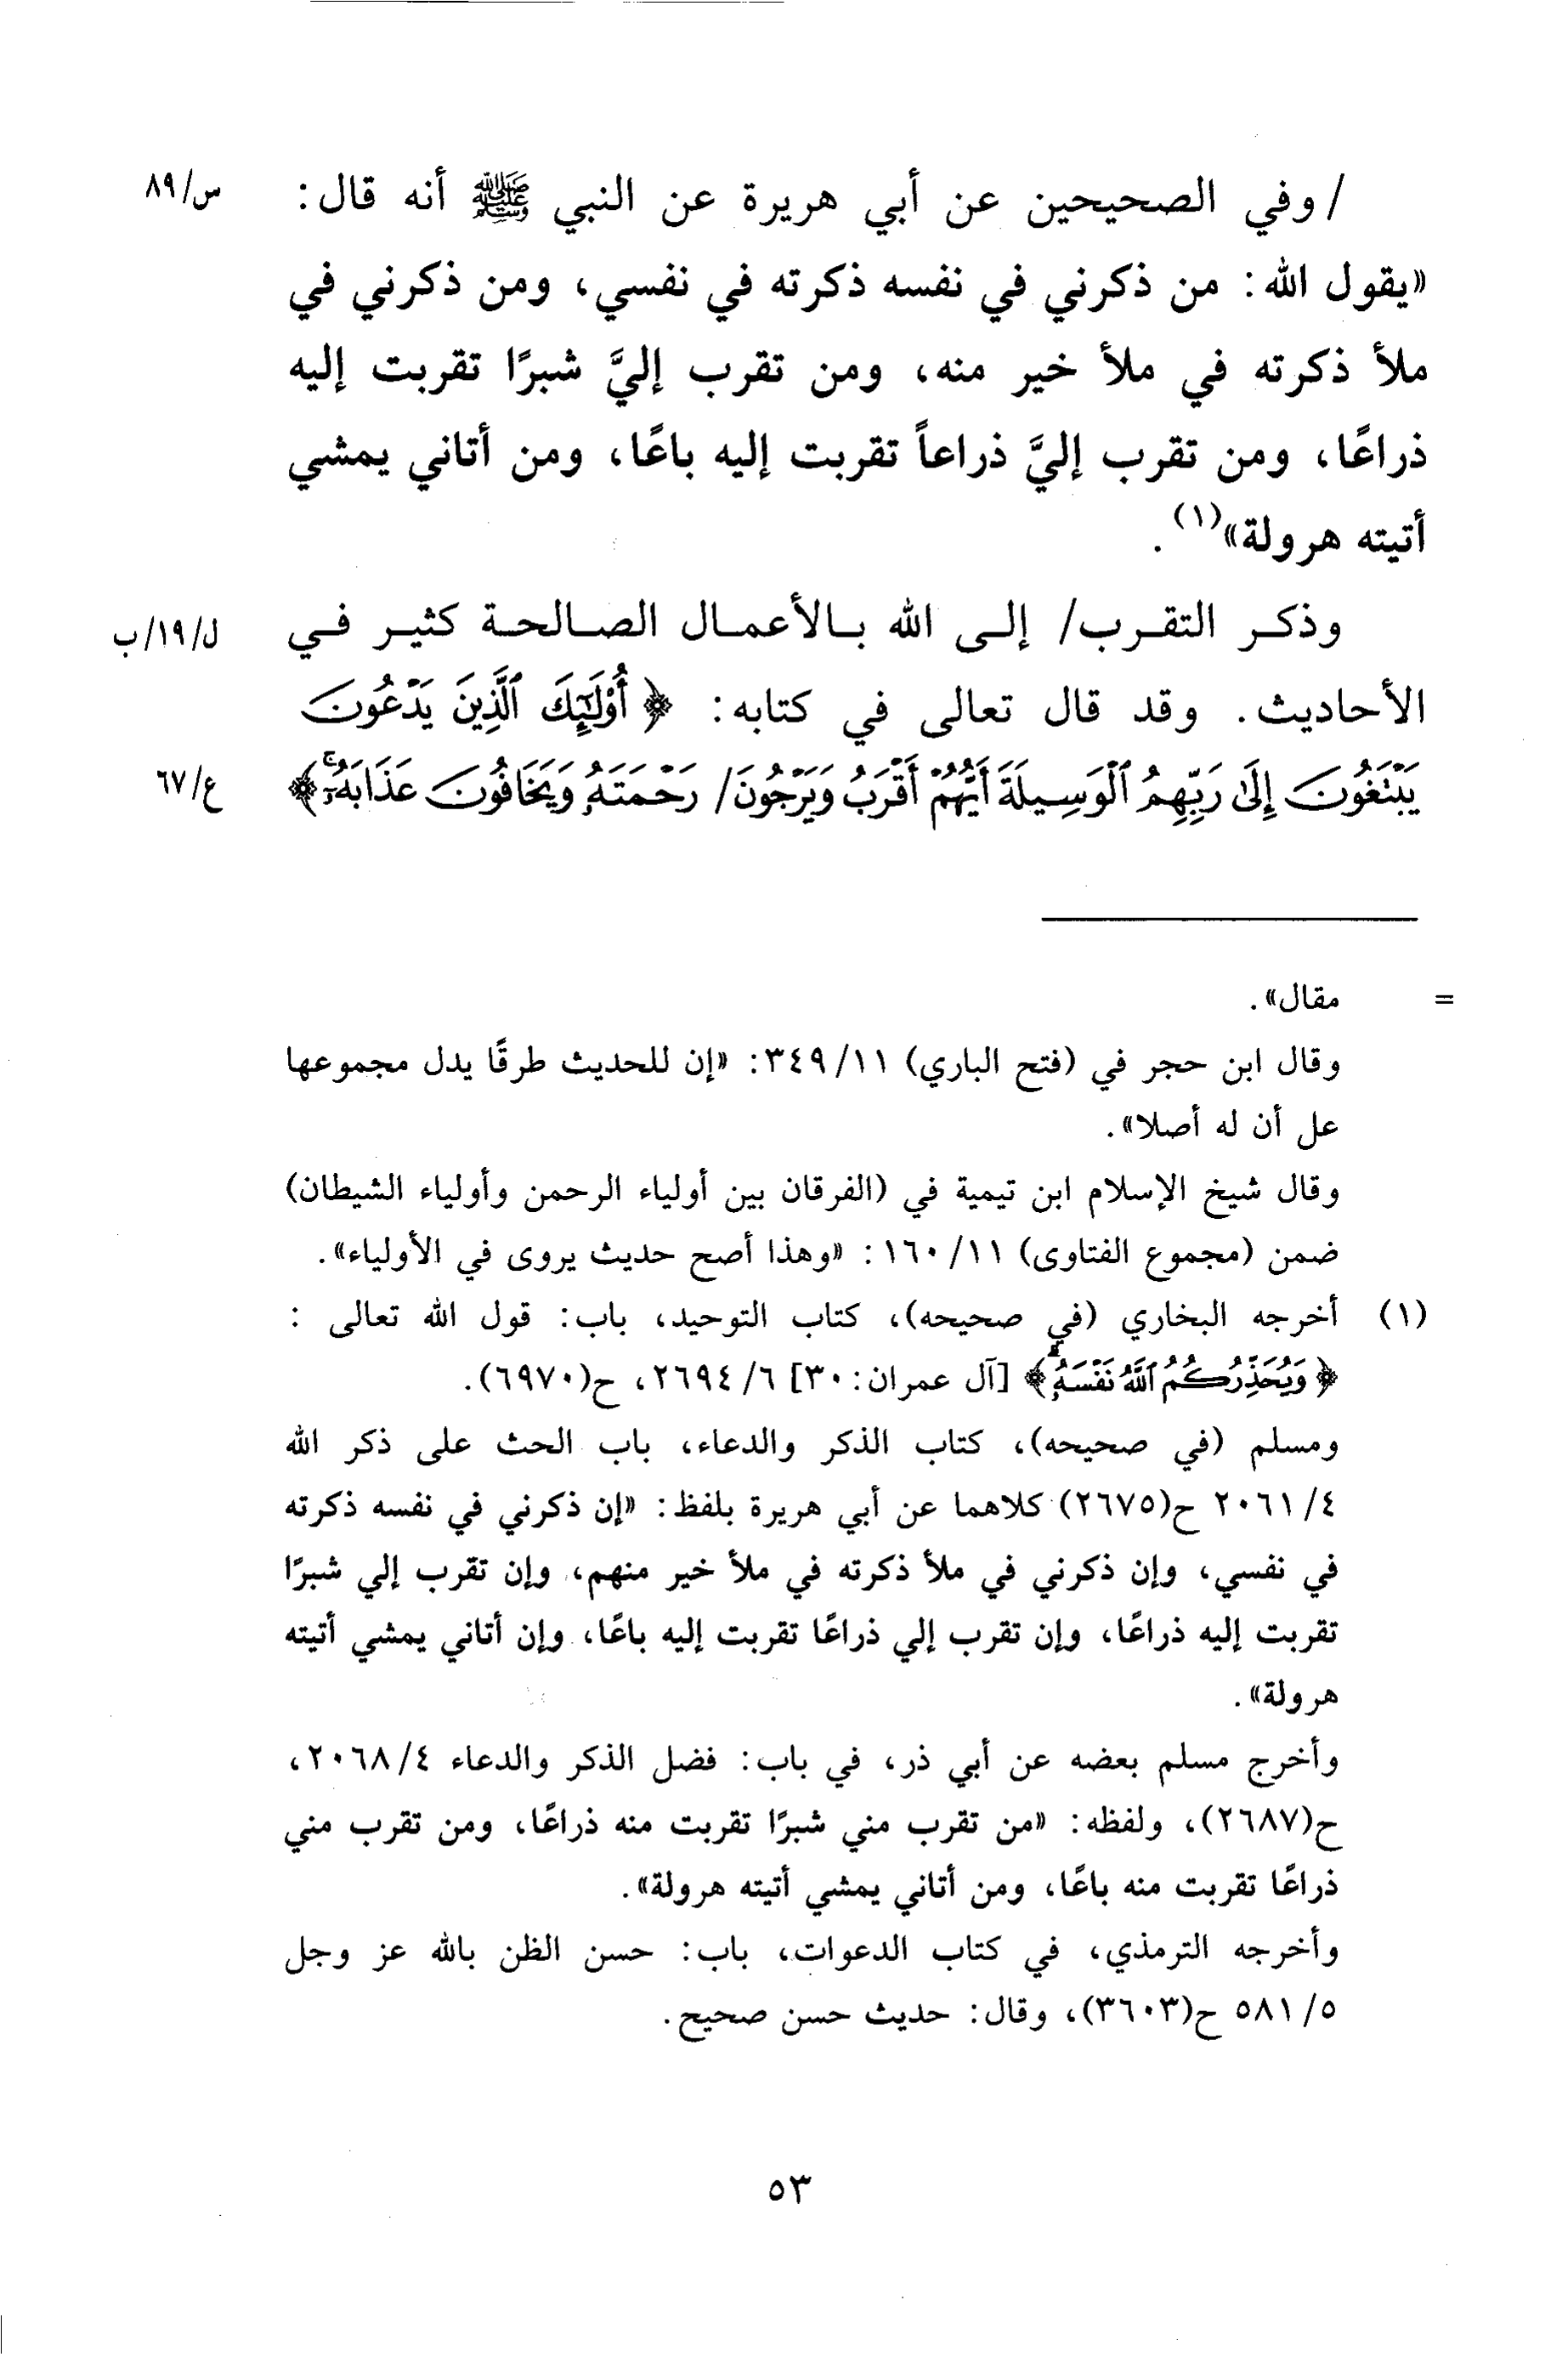 / وفي الصحيحين عن أبي هريرة عن النبي ﷺ أنه قال: س/٨٩
«يقول الله: من ذكرني في نفسه ذكرته في نفسي، ومن ذكرني في
ملأ ذكرته في ملأ خير منه، ومن تقرب إليَّ شبرًا تقربت إليه
ذراعًا، ومن تقرب إليَّ ذراعاً تقربت إليه باعًا، ومن أتاني يمشي
أتيته هرولة»(١).
وذكر التقرب/ إلى الله بالأعمال الصالحة كثير في ل/١٩/ب
الأحاديث. وقد قال تعالى في كتابه: ﴿ أُوْلَٰٓئِكَ ٱلَّذِينَ يَدْعُونَ
يَبْتَغُونَ إِلَىٰ رَبِّهِمُ ٱلْوَسِيلَةَ أَيُّهُمْ أَقْرَبُ وَيَرْجُونَ/ رَحْمَتَهُۥ وَيَخَافُونَ عَذَابَهُۥٓ ۚ﴾ ع/٦٧
= مقال».
وقال ابن حجر في (فتح الباري) ١١/ ٣٤٩: «إن للحديث طرقًا يدل مجموعها
عل أن له أصلا».
وقال شيخ الإسلام ابن تيمية في (الفرقان بين أولياء الرحمن وأولياء الشيطان)
ضمن (مجموع الفتاوى) ١١/ ١٦٠: «وهذا أصح حديث يروى في الأولياء».
(١) أخرجه البخاري (في صحيحه)، كتاب التوحيد، باب: قول الله تعالى :
﴿ وَيُحَذِّرُكُمُ ٱللَّهُ نَفْسَهُۥ ﴾ [آل عمران: ٣٠] ٦/ ٢٦٩٤، ح(٦٩٧٠).
ومسلم (في صحيحه)، كتاب الذكر والدعاء، باب الحث على ذكر الله
٤/ ٢٠٦١ ح(٢٦٧٥) كلاهما عن أبي هريرة بلفظ: «إن ذكرني في نفسه ذكرته
في نفسي، وإن ذكرني في ملأ ذكرته في ملأ خير منهم، وإن تقرب إلي شبرًا
تقربت إليه ذراعًا، وإن تقرب إلي ذراعًا تقربت إليه باعًا، وإن أتاني يمشي أتيته
هرولة».
وأخرج مسلم بعضه عن أبي ذر، في باب: فضل الذكر والدعاء ٤/ ٢٠٦٨،
ح(٢٦٨٧)، ولفظه: «من تقرب مني شبرًا تقربت منه ذراعًا، ومن تقرب مني
ذراعًا تقربت منه باعًا، ومن أتاني يمشي أتيته هرولة».
وأخرجه الترمذي، في كتاب الدعوات، باب: حسن الظن بالله عز وجل
٥/ ٥٨١ ح(٣٦٠٣)، وقال: حديث حسن صحيح.
٥٣